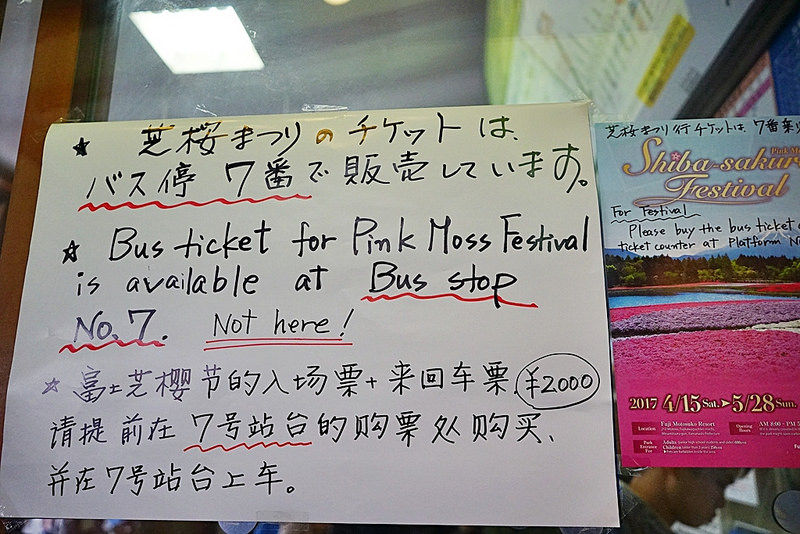 ★ 芝桜まつりのチケットは、
バス停 7番で販売しています。
★ Bus ticket for Pink Moss Festival
is available at Bus stop
No.7. Not here!
☆ 富士芝樱节的入场票+来回车票、¥2000
请提前在7号站台的购票处购买、
并在7号站台上车。
芝桜まつり行チケットは、7番乗り
Pink
Shiba-sakura
Festival
For Festival
Please buy the bus ticket
ticket counter at Platform
2017 4/15 Sat. ▶ 5/28 Sun.
Location
Fuji Motosuko Resort
Opening Hours
AM 8:00 - PM 5
Park Entrance Fee
Adults
Children